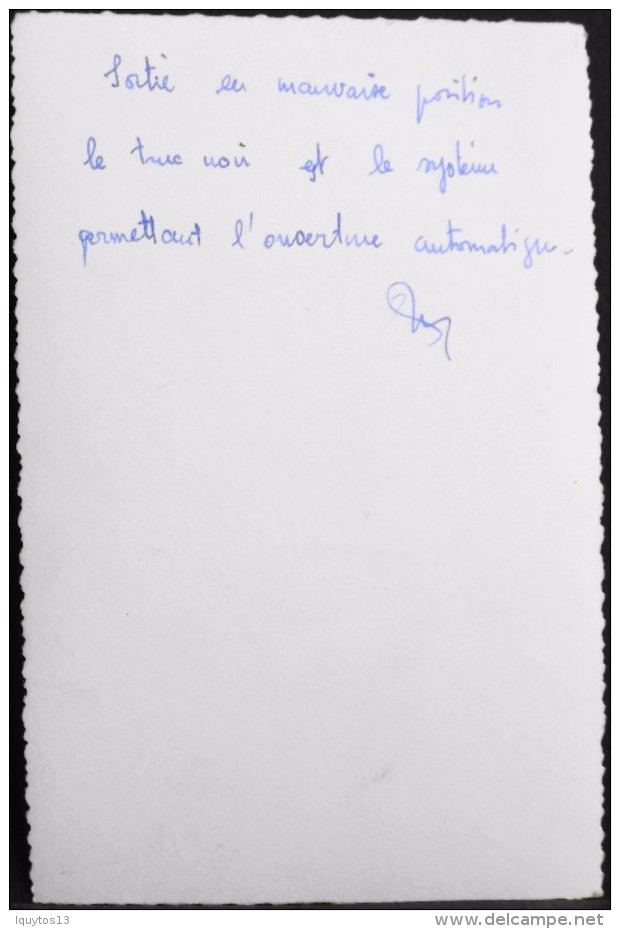 Sortie en mauvaise position
le truc noir est le système
permettant l'ouverture automatique.
lquytos13
delcampe.net